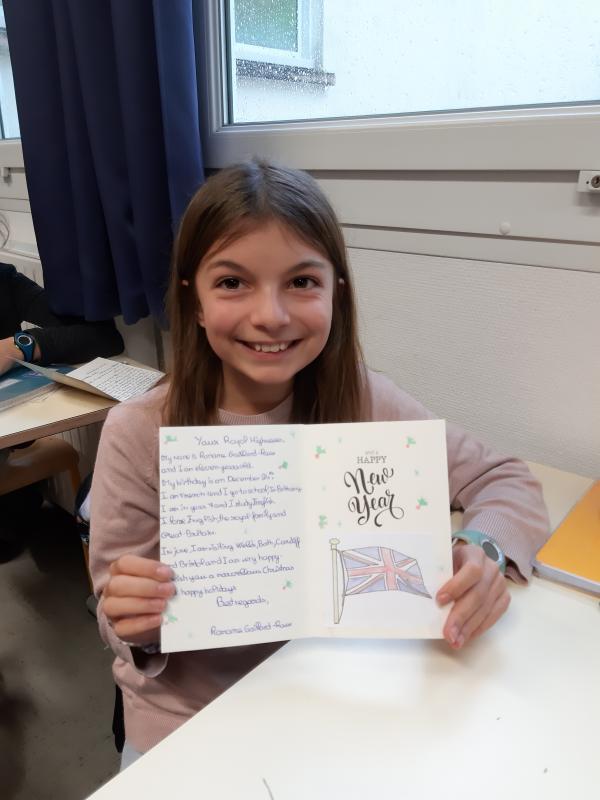 Your Royal Highnesses,
My name is
and I am eleven years old.
My birthday is on December 24th.
I am French and I go to school in
I am in year 7 and I study English.
I love English, the royal family and
Great-Britain.
In June, I am visiting Wells, Bath, Cardiff
and Bristol and I am very happy.
wish you a marvellous Christmas
happy holidays
Best regards,
AND A
HAPPY
New
Year